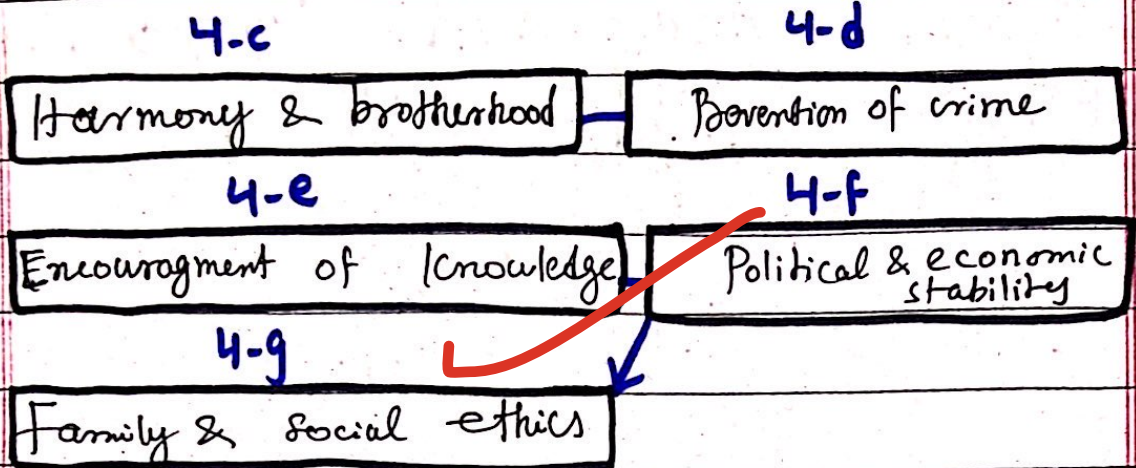 4-c 4-d
Harmony & brotherhood Prevention of crime
4-e 4-f
Encouragment of Knowledge Political & economic stability
4-g
Family & social ethics